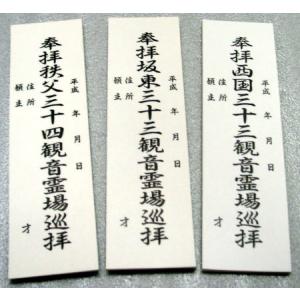 奉拝西国三十三観音霊場巡拝
平成　年　月　日
住所
願主
才
奉拝坂東三十三観音霊場巡拝
平成　年　月　日
住所
願主
才
奉拝秩父三十四観音霊場巡拝
平成　年　月　日
住所
願主
才